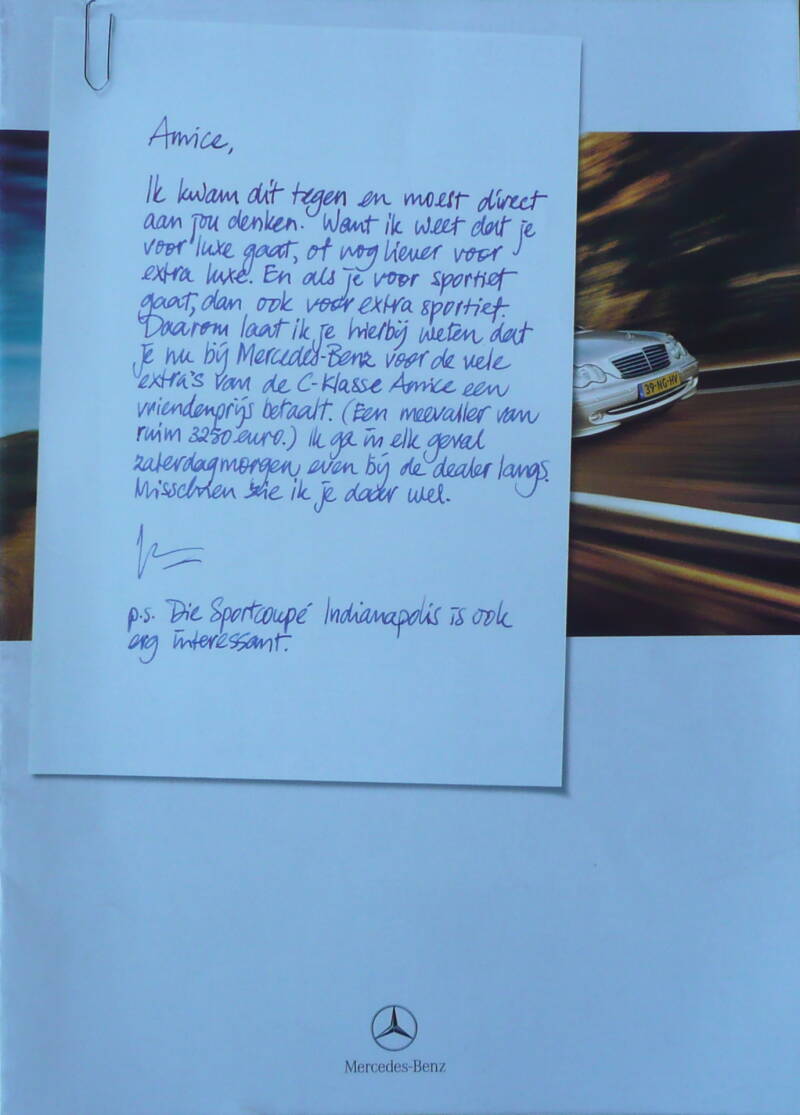 Amice,
Ik kwam dit tegen en moest direct
aan jou denken. Want ik weet dat je
voor luxe gaat, of nog liever voor
extra luxe. En als je voor sportief
gaat, dan ook voor extra sportief.
Daarom laat ik je hierbij weten dat
je nu bij Mercedes-Benz voor de vele
extra's van de C-Klasse Amice een
vriendenprijs betaalt. (Een meevaller van
ruim 3250 euro.) Ik ga in elk geval
zaterdagmorgen even bij de dealer langs.
Misschien zie ik je daar wel.
p.s. Die Sportcoupé Indianapolis is ook
erg interessant.
39-NG-HV
Mercedes-Benz